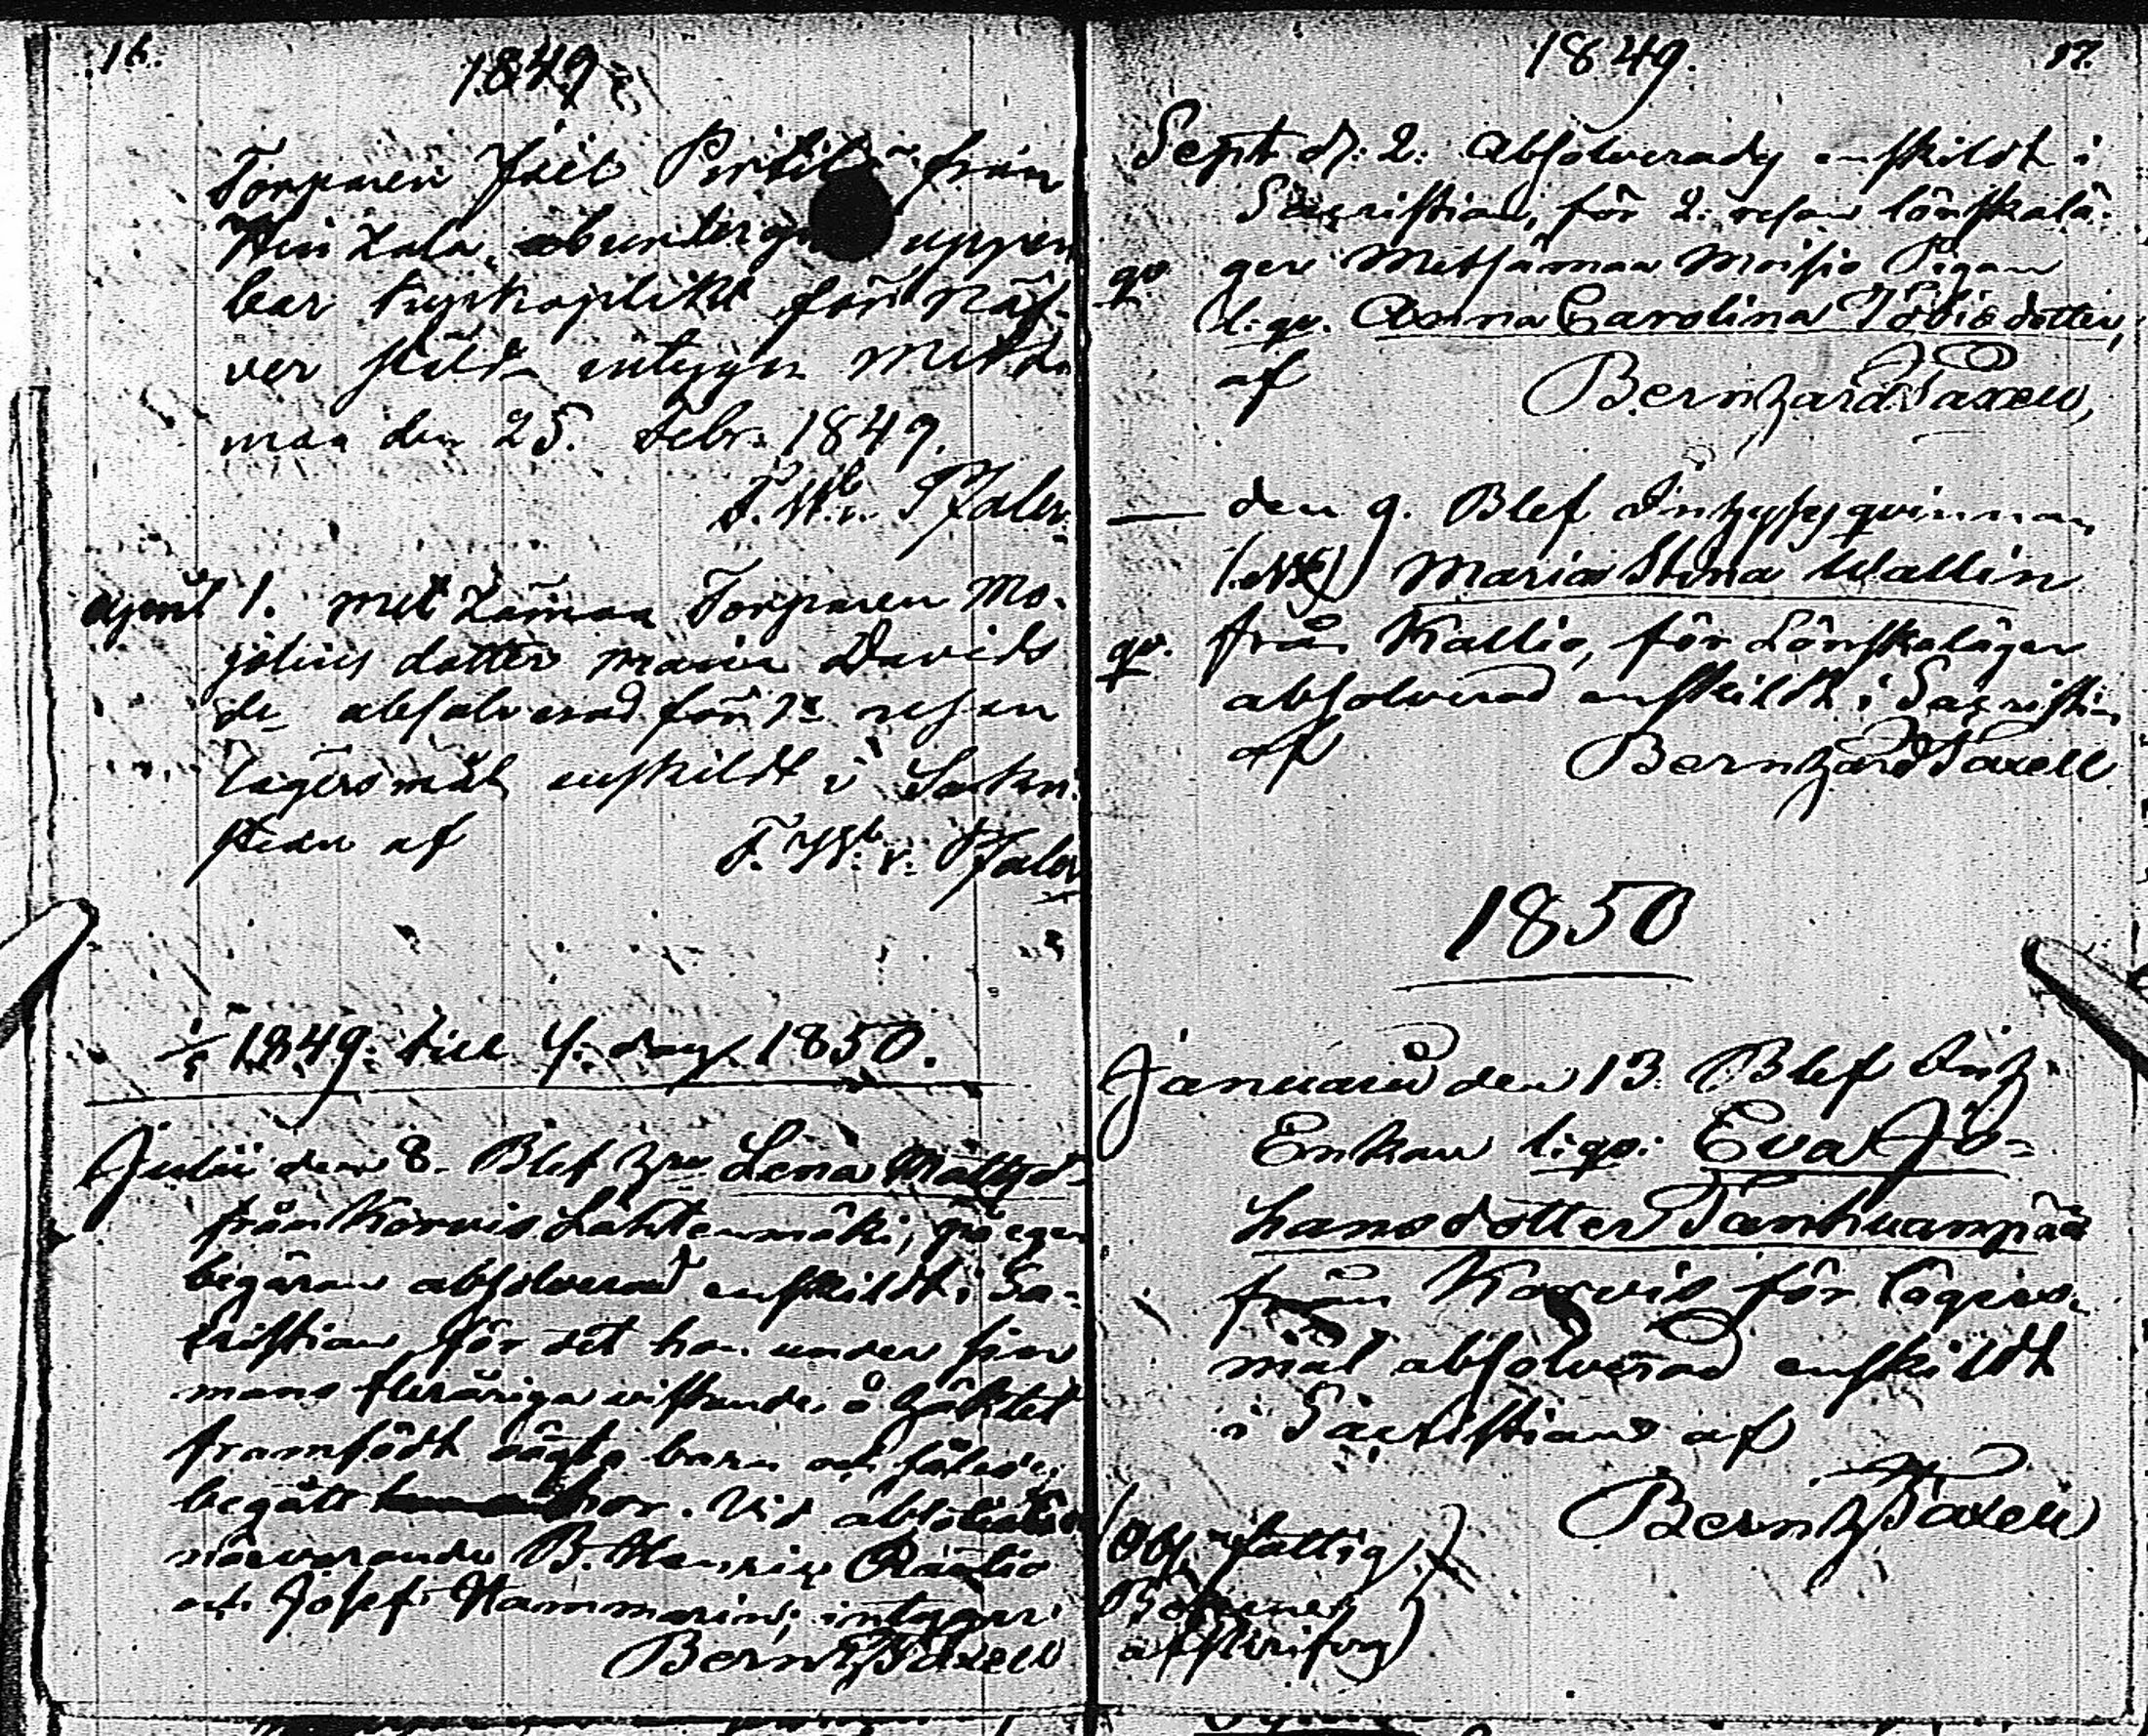 16.
1849
Torparen Joel Pertilä från
Hinzala, undergått uppen
bar kyrkoplikt för
den 25. Febr. 1849.
F. W. v. Pfaler
April 1. Metzämaa Torparen Mo-
dotter Maria Davids
absolverad för 1a resan
lägersmål enskildt i Sakri-
stian af
F. W. v. Pfaler
1849. till 1850.
Julii den 8. Blef Lena
från Korvis Lähtenmäki, på egen
begäran absolverad enskildt i Sa-
kristian för det hon under sin
mans fleråriga vistande å häktet
framfödt oägta barn och således
begått hor. Vid absolution
närvarande B. Henric Rautio
och Josef Hammarin; intygar:
Bernh Taxell
1849.
17.
Sept. d. 2. Absolverades enskildt i
Sacristian, för 2. resan lönskalä-
qv. ger Metsämaa Moisio Pigan
l. qv. Anna Carolina Tobiedotter,
af Bernhard Taxell,
— den 9. Blef Inhyses qvinnan
Maria Stina Wallin
qv. från Kallio, för Lönskaläger
absolverad enskildt i Sacristian
af Bernhard Taxell
1850
Januarii den 13. Blef Inh.
Enkan l. qv. Eva Jo-
hansdotter Tanhuanpää
från Korvis för lägers-
mål absolverad enskildt
i Sacristian af
Bernh Taxell
(Obs. fattig,
Böterne
afskrifvas)